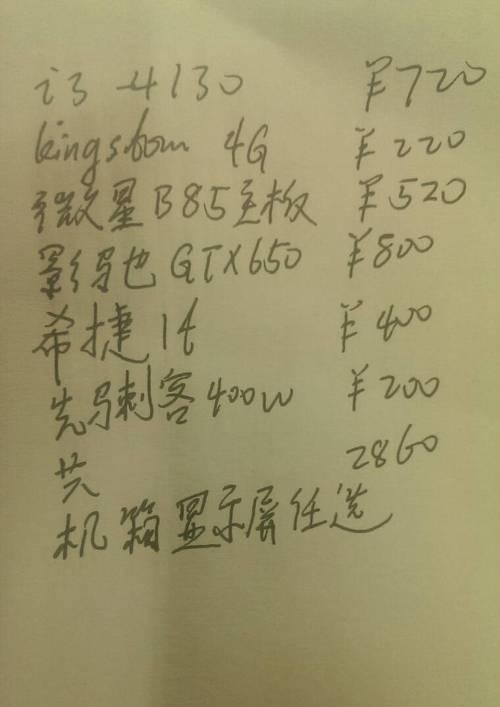 i3-4130 ¥720
kingston 4G ¥220
微星B85主板 ¥520
影驰 GTX650 ¥800
希捷 1t ¥400
先马刺客400w ¥200
共 2860
机箱显示屏任选